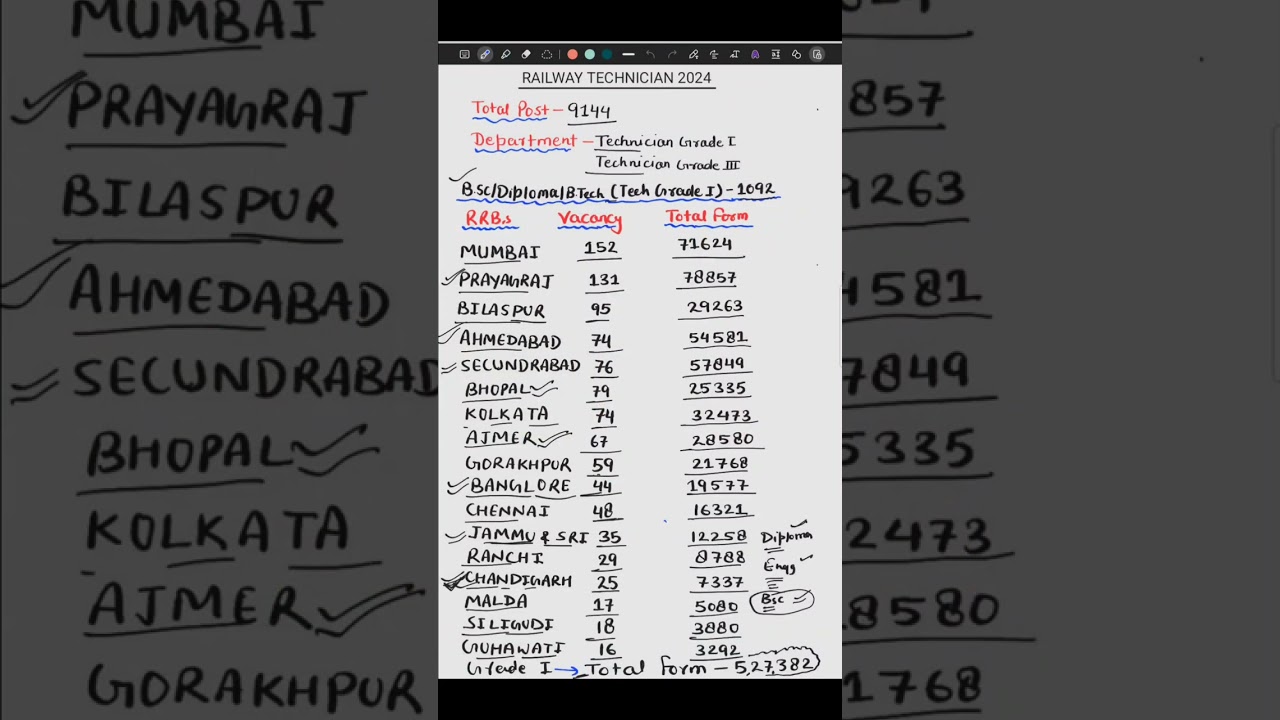 RAILWAY TECHNICIAN 2024
Total Post - 9144
Department - Technician Grade I
Technician Grade III
B.Sc/Diploma/B.Tech (Tech Grade I) - 1092
RRB.s Vacancy Total Form
MUMBAI 152 71624
PRAYAGRAJ 131 78857
BILASPUR 95 29263
AHMEDABAD 74 54581
SECUNDRABAD 76 57849
BHOPAL 79 25335
KOLKATA 74 32473
AJMER 67 28580
GORAKHPUR 59 21768
BANGLORE 44 19577
CHENNAI 48 16321
JAMMU & SRI 35 12258 Diploma
RANCHI 29 8788 Engg
CHANDIGARH 25 7337
MALDA 17 5080 Bsc
SILIGUDI 18 3880
GUHAWATI 16 3292
Grade I → Total form - 5,27,382
MUMBAI
PRAYAGRAJ 857
BILASPUR 9263
AHMEDABAD 4581
SECUNDRABAD 7849
BHOPAL 5335
KOLKATA 2473
AJMER 8580
GORAKHPUR 1768